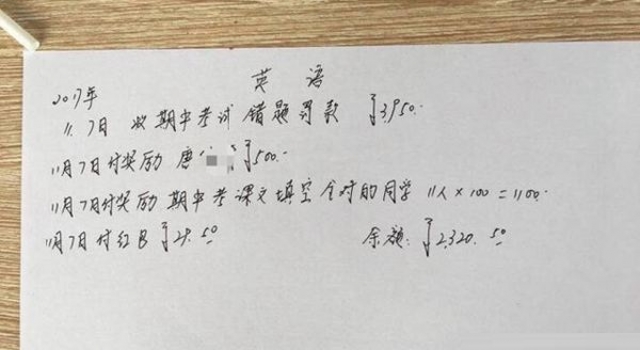 英语
2017年
11.7日 收期中考试错题罚款 ¥3,950.-
11月7日付奖励 唐 ¥500.-
11月7日付奖励期中考课文填空全对的同学 11人×100=1100.-
11月7日付红包 ¥29.50 余额:¥2,320.50